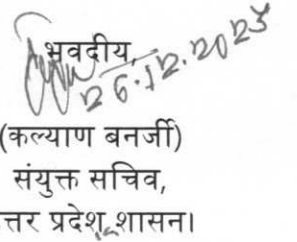 भवदीय,
26.12.2023
(कल्याण बनर्जी)
संयुक्त सचिव,
त्तर प्रदेश शासन।